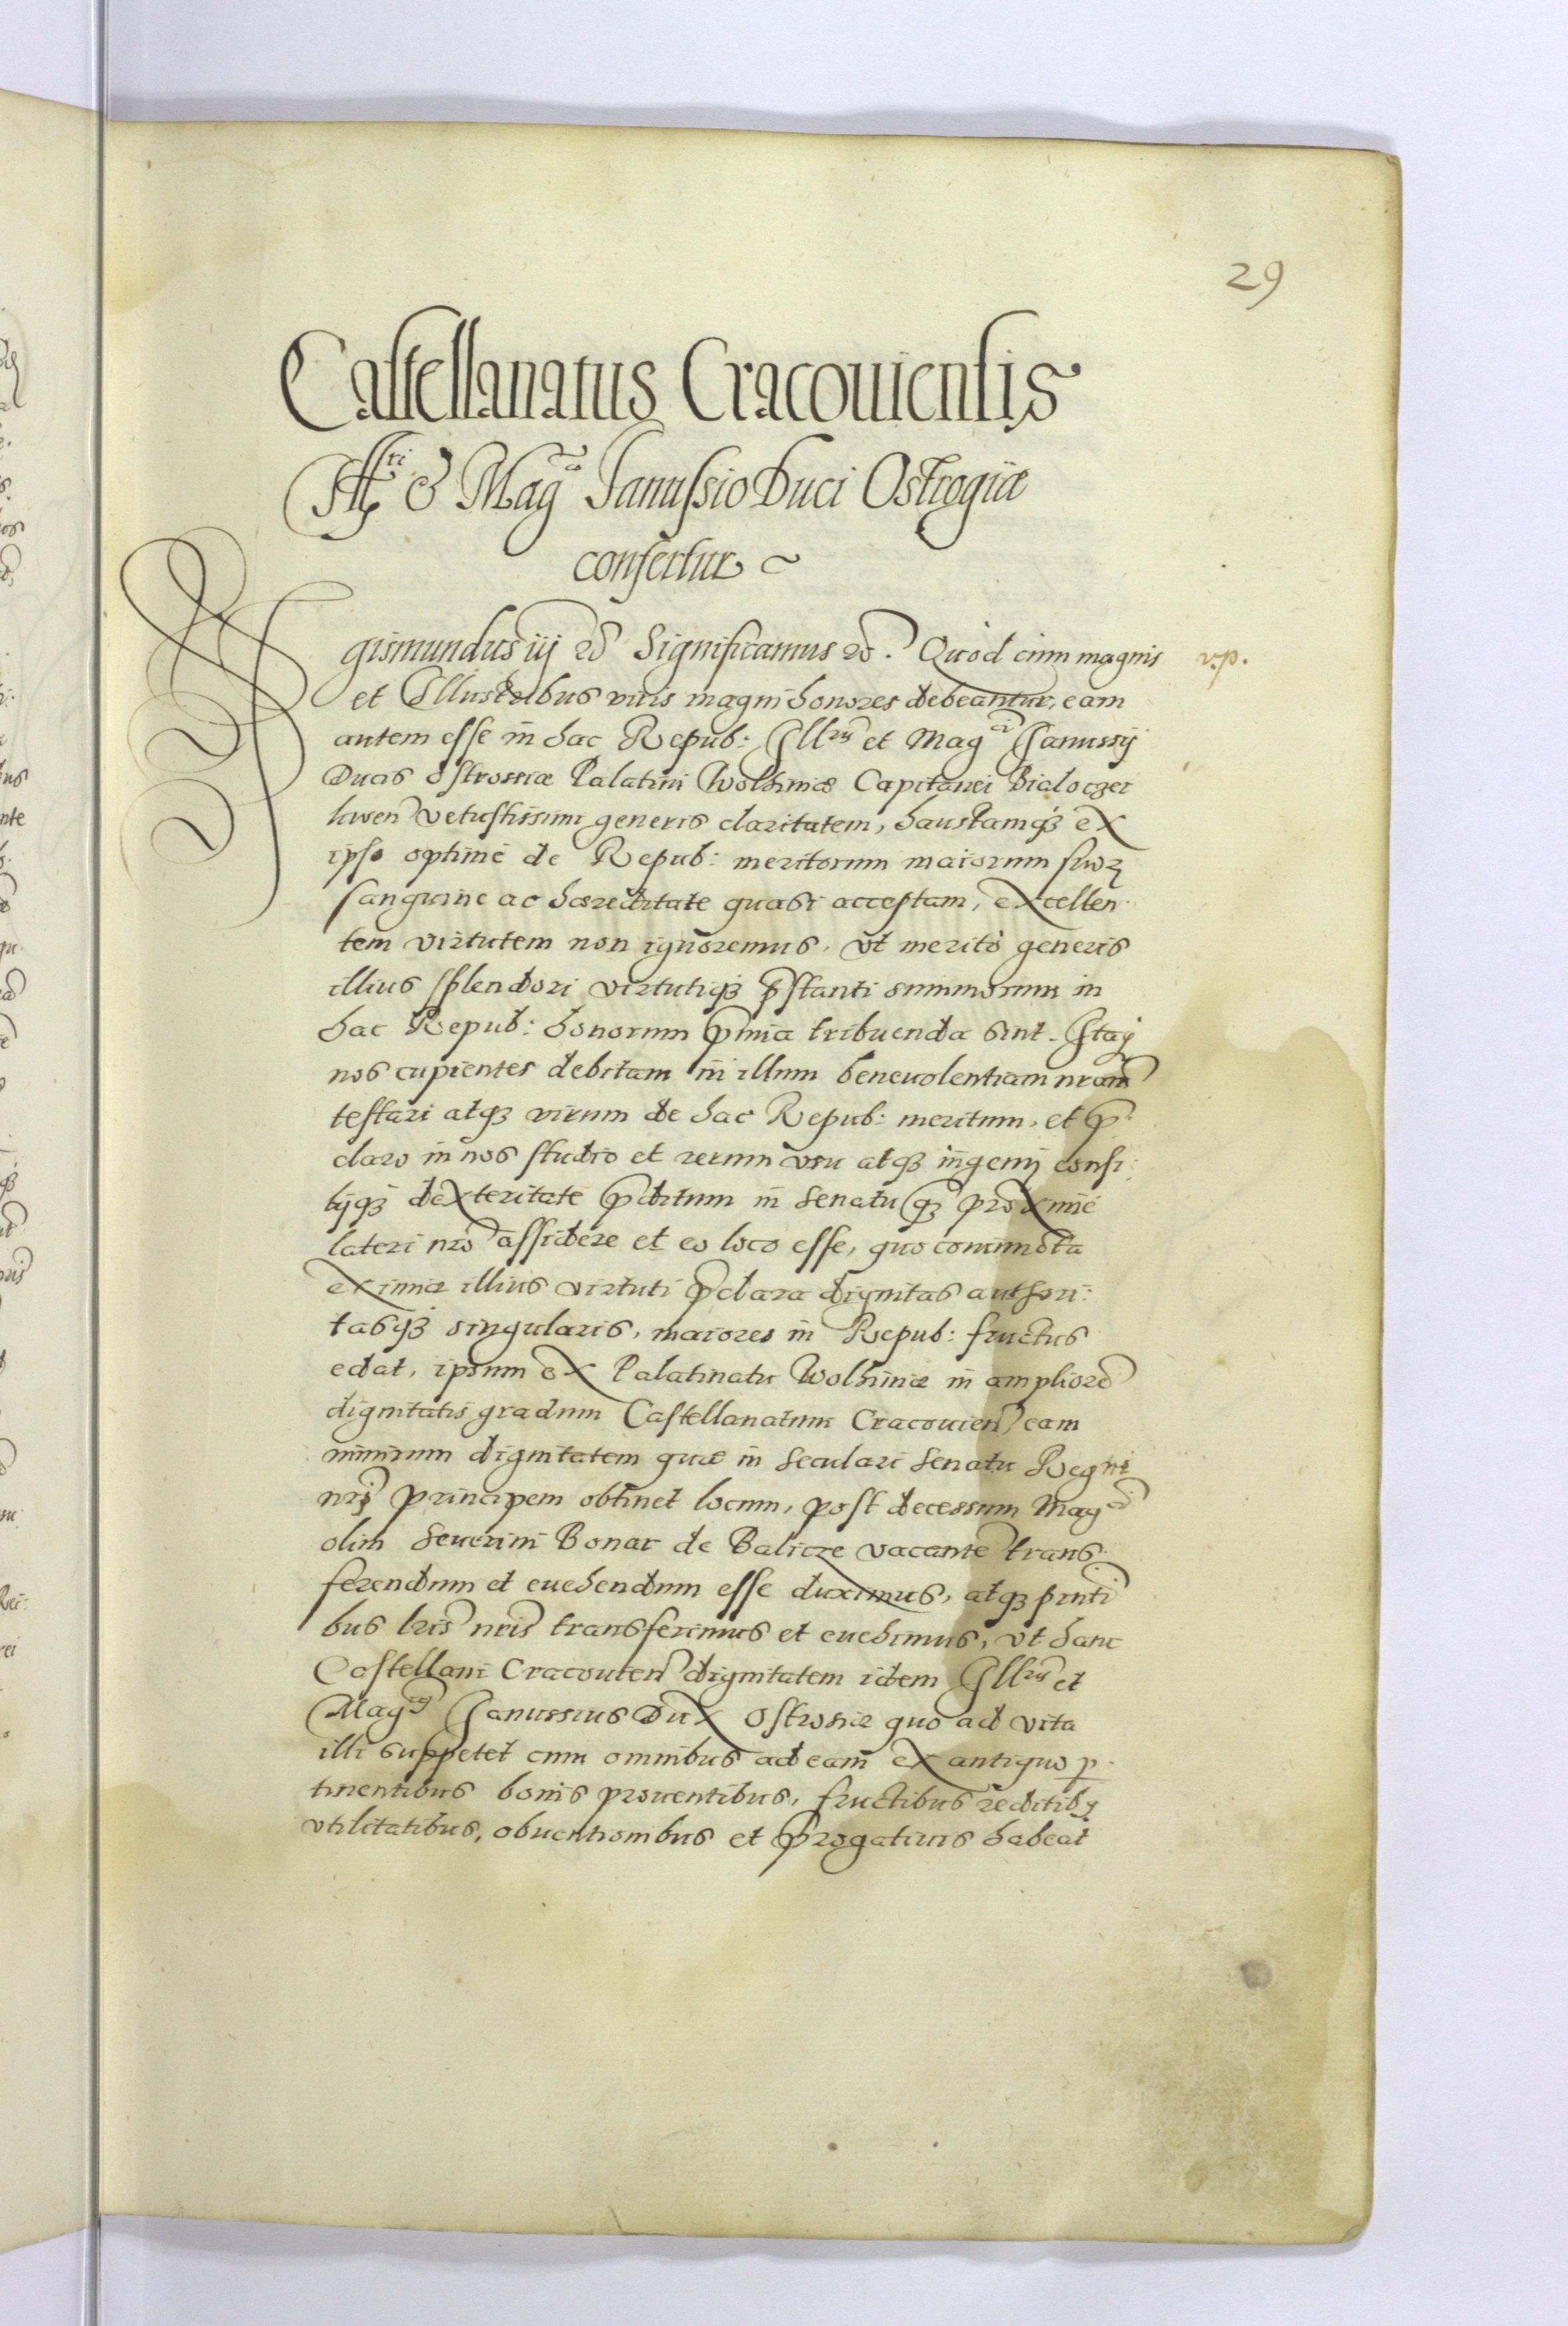 29
Castellanatus Cracouiensis
Ill^ri & Mag^co Janussio Duci Ostrogiæ
confertur
Sigismundus iij &c Significamus &c. Quòd cum magnis v.p.
et Illustribus viris magni honores debeantur, eam
autem esse in hac Repub: Ill^ris et Mag^ci Janussij
Ducis Ostrosiæ Palatini Wolhiniæ Capitanei Bialoczer
kwen̄ vetustissimi generis claritatem, haustamq₃ ex
ipso optimè de Repub: meritorum maiorum suoꝝ
sanguine ac hæreditate quasi acceptam, excellen
tem virtutem non ignoremus, vt meritò generis
illius splendori virtutiq₃ p̄stanti summorum in
hac Repub: honorum p̄mia tribuenda sint. Itaq̨
nos cupientes debitam in illum beneuolentiam nr̄am
testari atq₃ virum de hac Repub: meritum, et p̄
claro in nos studio et rerum vsu atq₃ ingenij consi:
lijq₃ dexteritate p̄ditum in Senatu q₃ proximè
lateri nr̄o assidere et eo loco esse, quo commota
eximiæ illius virtuti p̄clara dignitas authori:
tasq₃ singularis, maiores in Repub: fructus
edat, ipsum ex Palatinatu Wolhiniæ in ampliorē
dignitatis gradum Castellanatum Cracouien̄, eam
nimirum dignitatem quæ in Seculari Senatu Regni
nr̄i principem obtinet locum, post decessum Mag^ci
olim Seuerini Bonar de Balicze vacantē trans
ferendum et euehendum esse duximus, atq₃ pr̄nti
bus lr̄is nr̄is transferimus et euehimus, vt hanc
Castellani Cracouien̄ dignitatem idem Ill^ris et
Mag^cus Janussius Dux Ostrosiæ quo ad vita
illi suppetet cum omnibus ad eam ex antiquo ꝑ
tinentibus bonis prouentibus, fructibus reditibꝯ
vtilitatibus, obuentionibus et p̄rogatiuis habeat